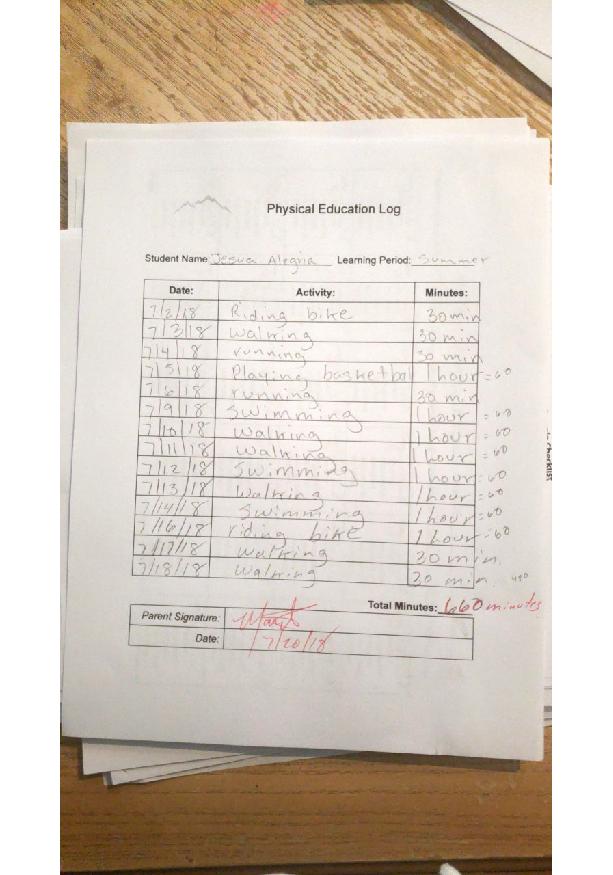 Physical Education Log
Student Name: Jesua Alegria Learning Period: Summer
Date: Activity: Minutes:
7/2/18 Riding bike 30 min
7/3/18 walking 30 min
7/4/18 running 30 min
7/5/18 Playing basketbal 1 hour = 60
7/6/18 running 30 min
7/9/18 swimming 1 hour = 60
7/10/18 walking 1 hour = 60
7/11/18 walking 1 hour = 60
7/12/18 Swimming 1 hour = 60
7/13/18 walking 1 hour = 60
7/14/18 swimming 1 hour = 60
7/16/18 riding bike 1 hour = 60
7/17/18 walking 30 min.
7/18/18 walking 30 min.
Total Minutes: 660 minutes
Parent Signature:
Date: 7/20/18
Checklist